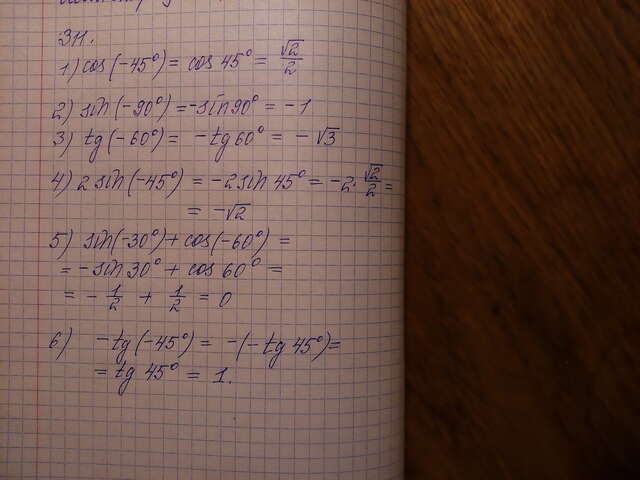 311.
1) cos(-45°) = cos 45° = √2/2
2) sin(-90°) = -sin 90° = -1
3) tg(-60°) = -tg 60° = -√3
4) 2 sin(-45°) = -2 sin 45° = -2·√2/2 =
= -√2
5) sin(-30°) + cos(-60°) =
= -sin 30° + cos 60° =
= -1/2 + 1/2 = 0
6) -tg(-45°) = -(-tg 45°) =
= tg 45° = 1.